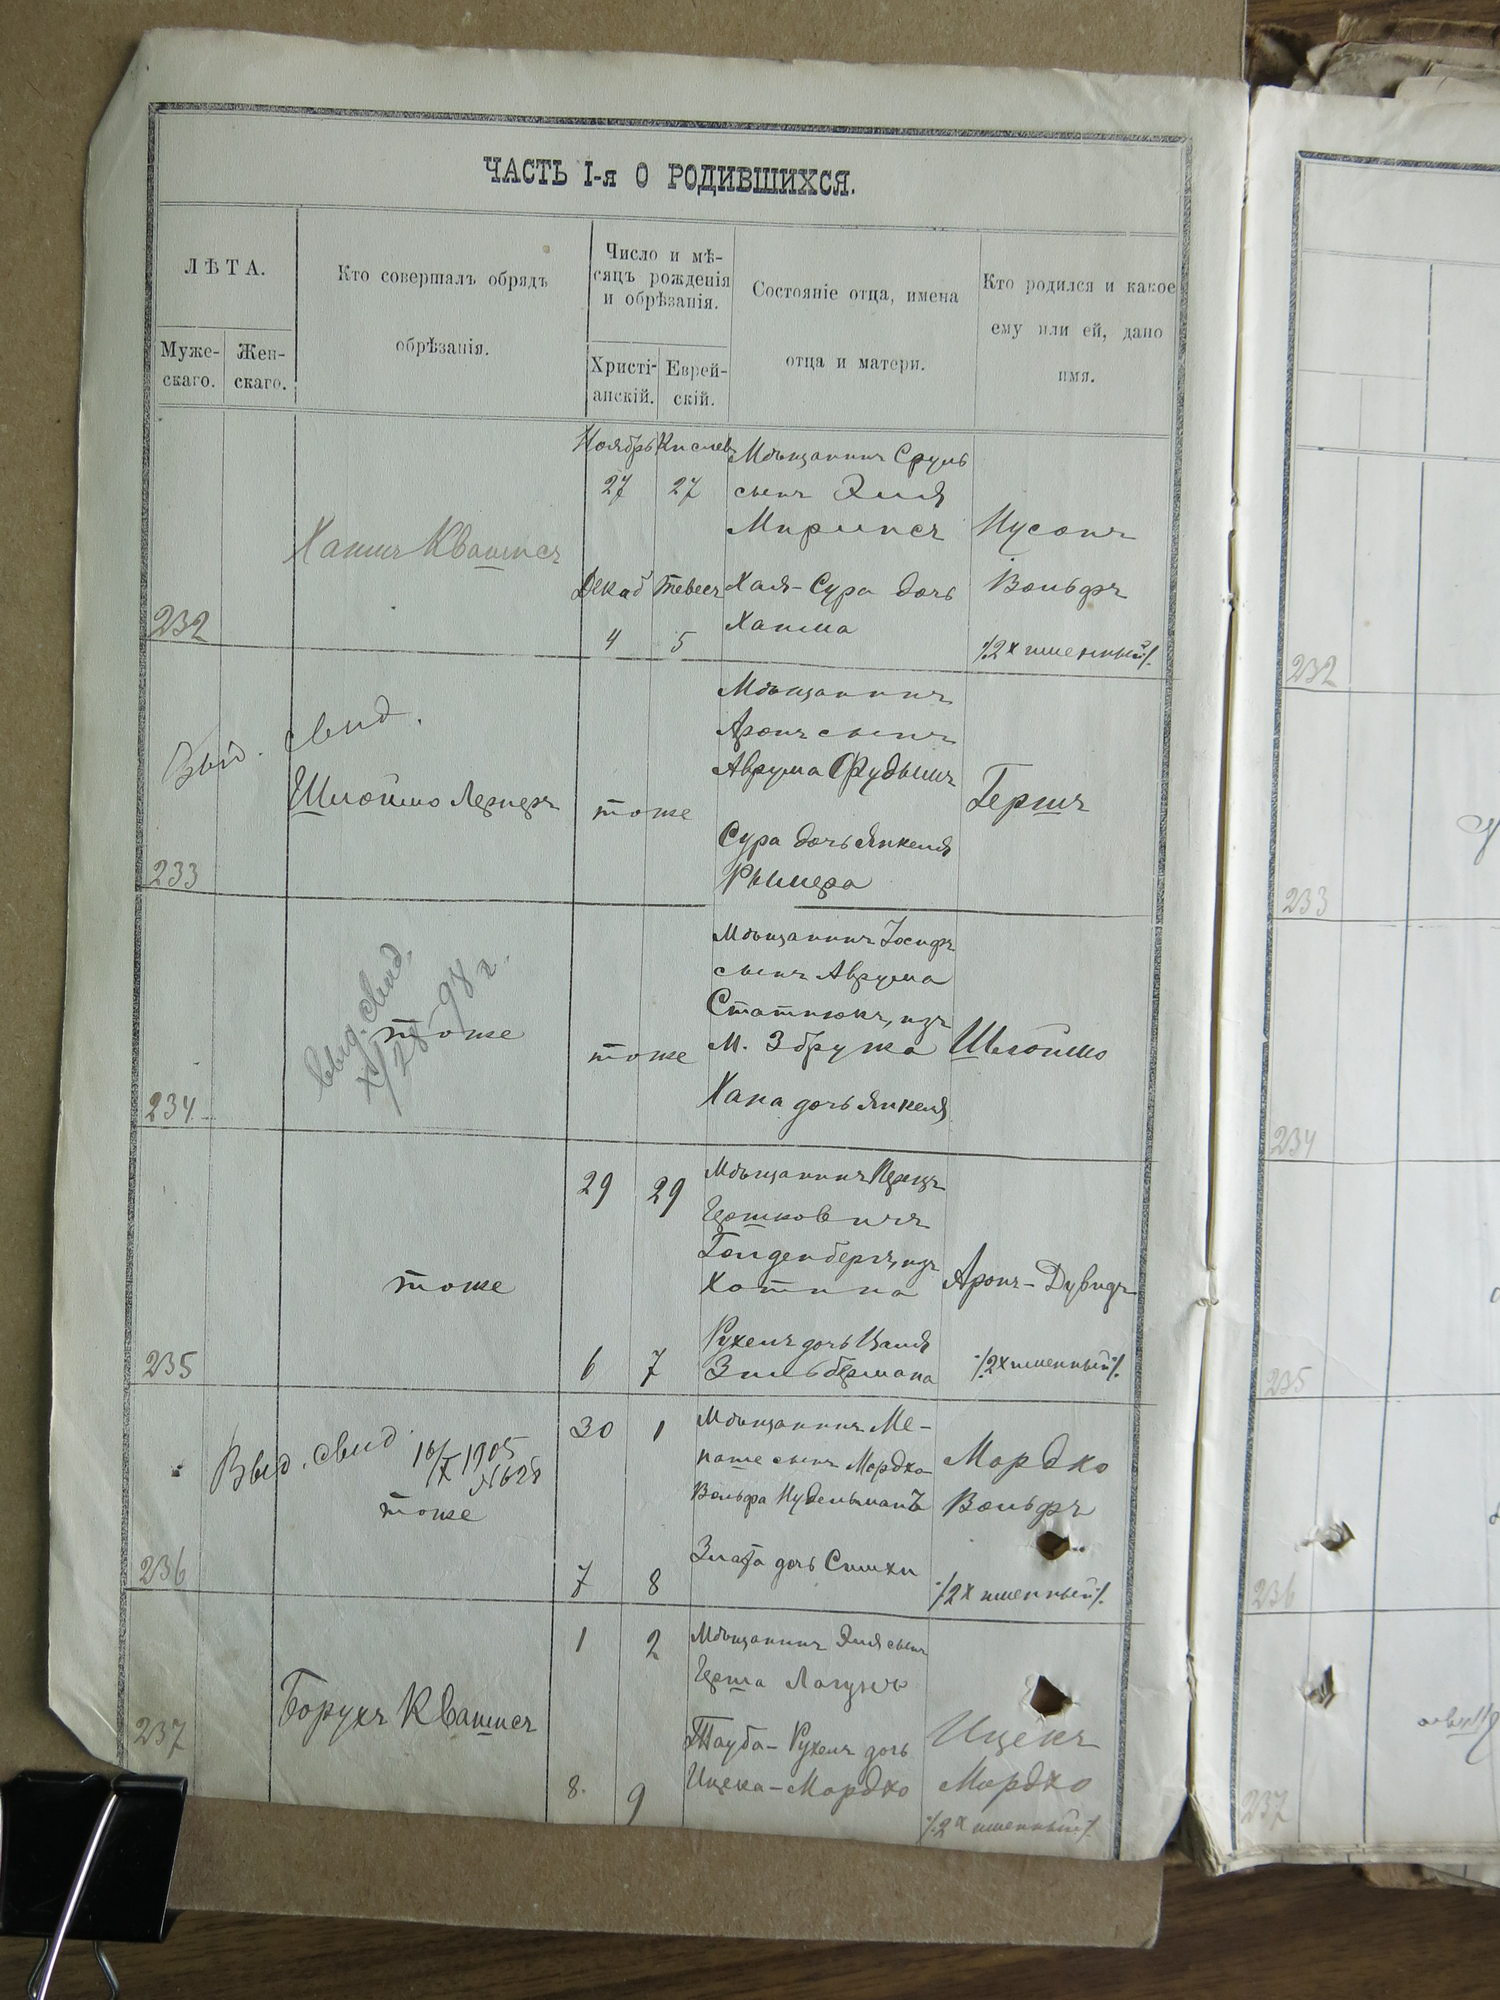 ЧАСТЬ I-я О РОДИВШИХСЯ.
ЛѢТА.
Муже-
скаго.
Жен-
скаго.
Кто совершалъ обрядъ
обрѣзанія.
Число и мѣ-
сяцъ рожденія
и обрѣзанія.
Христі-
анскій.
Еврей-
скій.
Состояніе отца, имена
отца и матери.
Кто родился и какое
ему или ей, дано
имя.
232
Хаимъ Квашисъ
Ноябрь Кислев
27 27
Декаб Тевесъ
4 5
Мѣщанинъ Сруль
сынъ Эля
Мирписъ
Хая-Сура дочь
Хаима
Нусонъ
Вольфъ
/.2х именный/.
233
Выд. свид.
Шлоймо Лернеръ
тоже
Мѣщанинъ
Аронъ сынъ
Аврума Фудымъ
Сура дочь Янкеля
Рымера
Гершъ
234
выд. свид.
X/28 98 г.
тоже
тоже
Мѣщанинъ Іосифъ
сынъ Аврума
Статнюкъ, изъ
м. Збружа
Хана дочь Янкеля
Шлоймо
235
тоже
29 29
6 7
Мѣщанинъ Перецъ
Гершковичъ
Голденбергъ, изъ
Хотина
Рухель дочь
Зильбермана
Аронъ-Дувидъ
/.2х именный/.
236
Выд. свид. 10/X 1905
№628
тоже
30 1
7 8
Мѣщанинъ Ме-
наше сынъ Мордко
Вольфа Нудельманъ
Злата дочь Симхи
Мордко
Вольфъ
/.2х именный/.
237
Борухъ Квашисъ
1 2
8. 9
Мѣщанинъ Эля сынъ
Герша
Тауба-Рухель дочь
Ицека-Мордко
Ицекъ
Мордко
/.2х именный/.
232
233
234
235
236
237